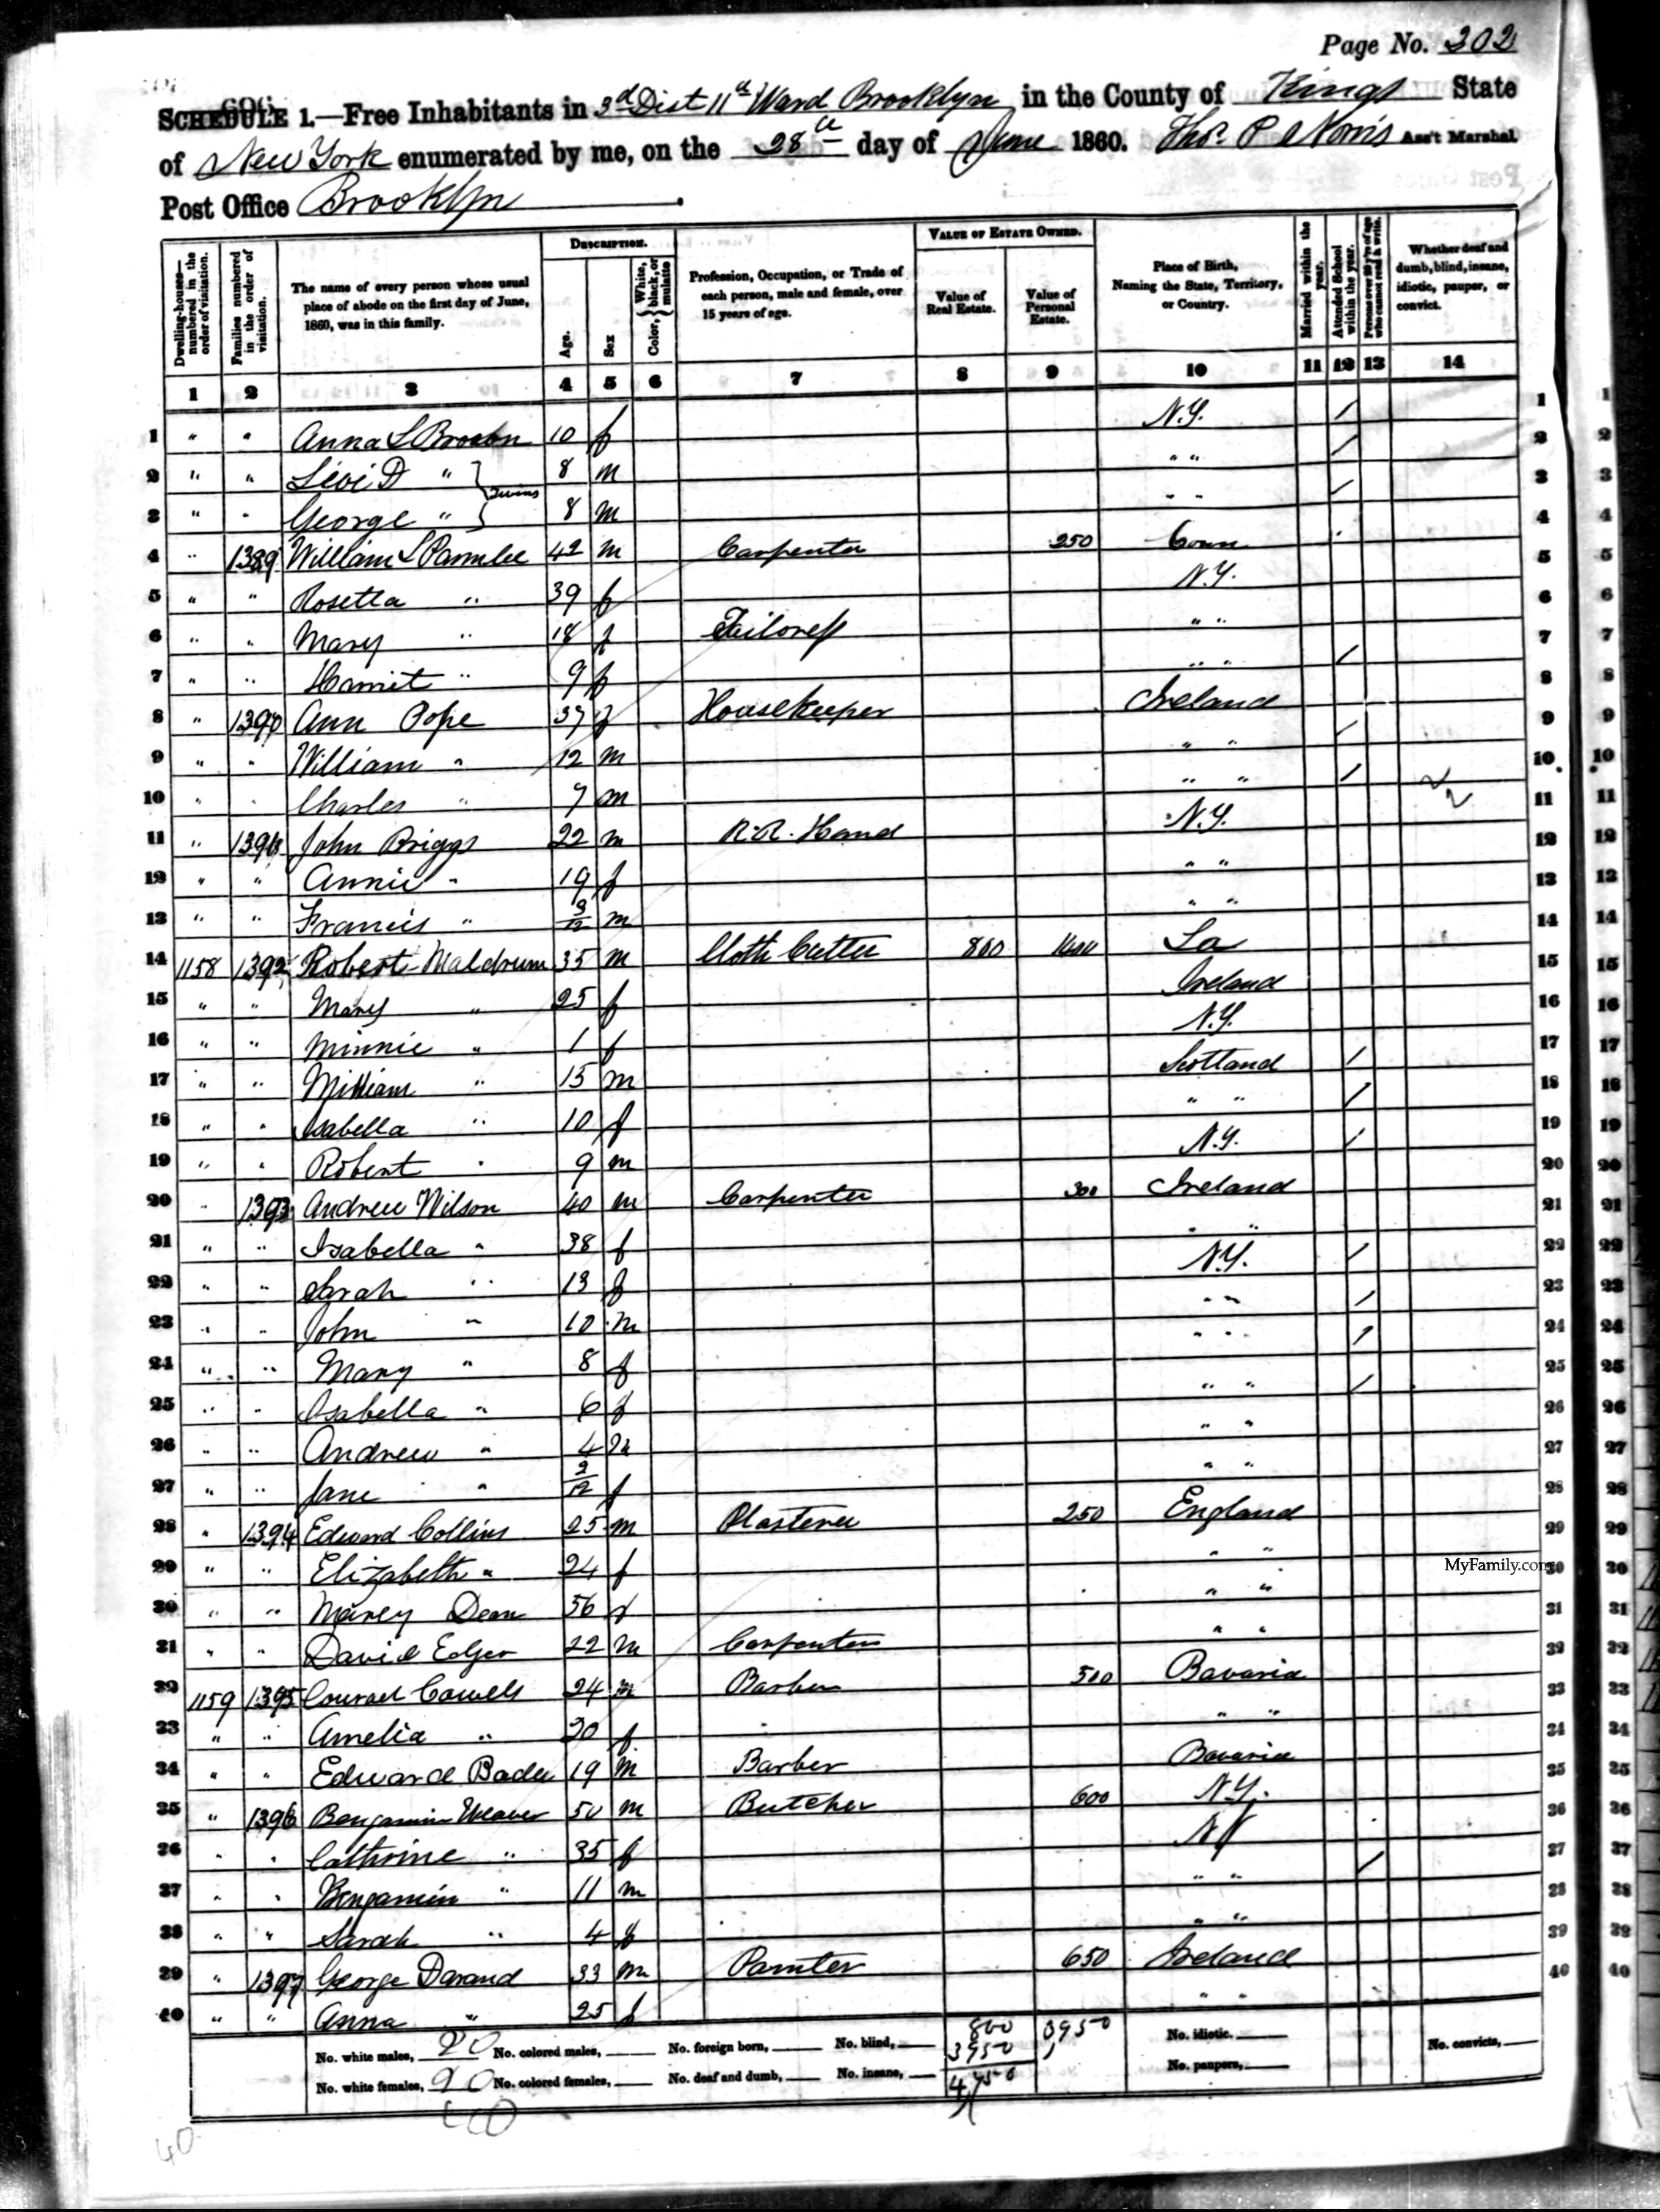 Page No. 202
SCHEDULE 1.—Free Inhabitants in 3d Dist 11th Ward Brooklyn in the County of Kings State
of New York enumerated by me, on the 28th day of June 1860. Thos. P Norris Ass't Marshal
Post Office Brooklyn
Dwelling-houses—numbered in the order of visitation. Families numbered in the order of visitation. The name of every person whose usual place of abode on the first day of June, 1860, was in this family. Description. Age. Sex Color, { White, black, or mulatto Profession, Occupation, or Trade of each person, male and female, over 15 years of age. Value of Estate Owned. Value of Real Estate. Value of Personal Estate. Place of Birth, Naming the State, Territory, or Country. Married within the year. Attended School within the year. Persons over 20 y'rs of age who cannot read & write. Whether deaf and dumb, blind, insane, idiotic, pauper, or convict.
1 2 3 4 5 6 7 8 9 10 11 12 13 14
1 " " Anna L Brown 10 f N.Y. / 1
2 " " Levi D " } Twins 8 m " " / 2
3 " " George " } 8 m " " / 3
4 " 1389 William L Parmlee 42 m Carpenter 250 Conn 4
5 " " Rosetta " 39 f N.Y. 5
6 " " Mary " 18 f Tailoress " " 6
7 " " Harriet " 9 f " " / 7
8 " 1390 Ann Pope 37 f Housekeeper Ireland 8
9 " " William " 12 m " " / 9
10 " " Charles " 7 m " " / 10
11 " 1391 John Briggs 22 m R.R. Hand N.Y. 11
12 " " Annie " 19 f " " 12
13 " " Francis " 3/12 m " " 13
14 1158 1392 Robert Maldrum 35 m Cloth Cutter 800 1400 La 14
15 " " Mary " 25 f Ireland 15
16 " " Minnie " 1 f N.Y. 16
17 " " William " 15 m Scotland / 17
18 " " Isabella " 10 f " " / 18
19 " " Robert " 9 m N.Y. / 19
20 " 1393 Andrew Wilson 40 m Carpenter 300 Ireland 20
21 " " Isabella " 38 f " " 21
22 " " Sarah " 13 f N.Y. / 22
23 " " John " 10 m " " / 23
24 " " Mary " 8 f " " / 24
25 " " Isabella " 6 f " " / 25
26 " " Andrew " 4 m " " 26
27 " " Jane " 2/12 f " " 27
28 " 1394 Edward Collins 25 m Plasterer 250 England 28
29 " " Elizabeth " 24 f " " 29
30 " " Dean 56 f " " 30
31 " " David Edger 22 m Carpenter " " 31
32 1159 1395 Conrad Cowells 24 m Barber 500 Bavaria 32
33 " " Amelia " 20 f " " 33
34 " " Edward Bader 19 m Barber Bavaria 34
35 " 1396 Benjamin Weaver 50 m Butcher 600 N.Y. 35
36 " " Catherine " 35 f N.Y. 36
37 " " Benjamin " 11 m " " / 37
38 " " Sarah " 4 f " " 38
39 " 1397 George Darand 33 m Painter 650 Ireland 39
40 " " Anna " 25 f " " 40
MyFamily.com
No. white males, 20 No. colored males, No. foreign born, No. blind, 800 3950 No. idiotic. No. convicts,
No. white females, 20 No. colored females, No. deaf and dumb, No. insane, 3950 No. paupers,
40 4750
40